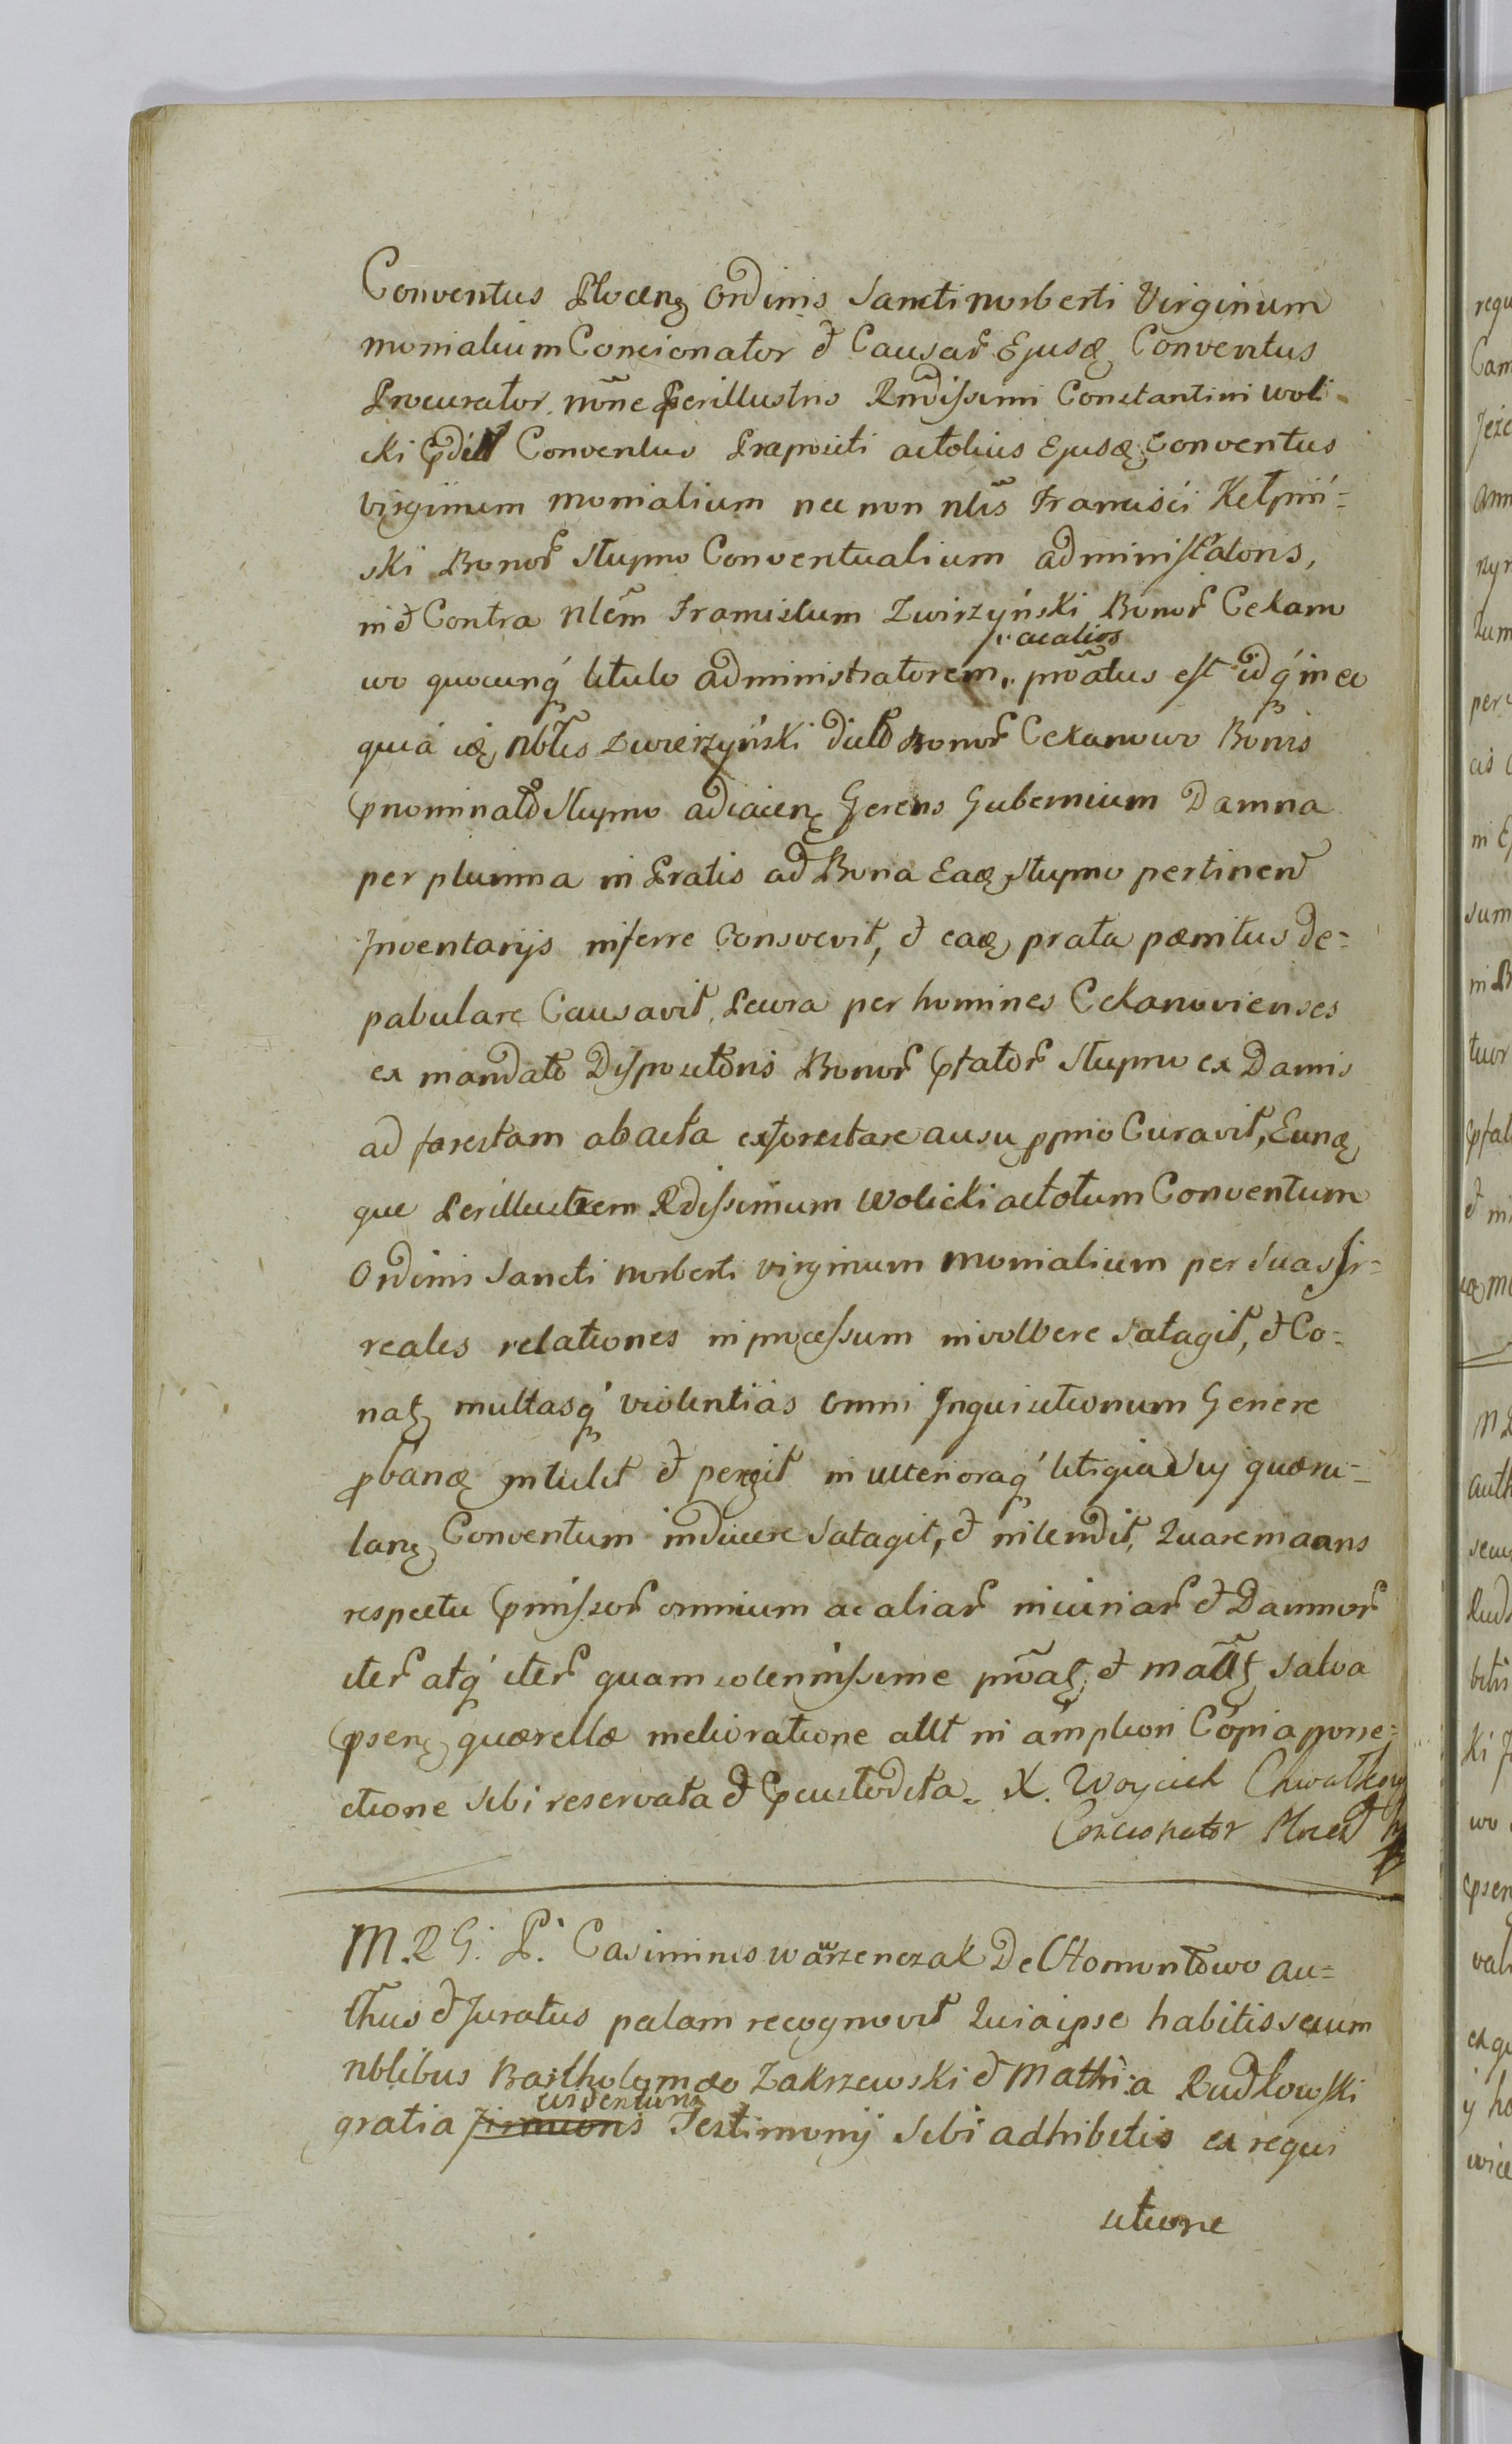 Conventus Plocen Ordinis Sancti Norberti Virginum
monialium Concionator & Causar Ejusd Conventus
Procurator nõne Perillustris Rmdissimi Constantini Woli-
cki Conventus Prapositi actotius Ejusd Conventus
virginum monialium nec non nlis Francisci Kelpin=
ski Bonor Słupno Conventualium administratoris,
in & Contra Nlem Franciscum Zwirzyński Bonor Cekano
wo quocunq titulo administratorem, proatus est idq in eo
ac alios
quia id Nblis Zwierzyński dict Bonor Cekanowo Bonis
pnominat Słupno adiacen Gerens Gubernium Damna
per plurima in Pratis ad Bona Ead Słupno pertinen
Inventarijs inferre Consvevit, & ead prata pænitus de=
pabulare Causavit, Pecora per homines Cekanovienses
ex mandato Dispositoris Bonor pfator Słupno ex Damis
ad forestam abacta exforestare ausu pprio Curavit, Eund
que Perillustrem Rdissimum Wolicki actotum Conventum
Ordinis Sancti Norberti virginum monialium per suas Ir=
reales relationes in processum involvere satagit, & Co=
nat multasq violentias omni Inquisitionum Genere
pband intulit & pergit in ulterioraq litigia
lan Conventum inducere satagit, & intendit, Quare mans
respectu pmissor omnium ac aliar iniuriar & Damnor
iter atq iter quam solennissime proat, & matt salva
psen quærellæ melioratione allt in ampliori Copia porre=
ctione sibi reservata & pcustodita. X. Woyciech Chwalkow
Concionator Plocen
M. R G. P. Casimirus Warzenczak De Chomontowo au=
thus & Juratus palam recognovit Quia ipse habitis secum
nblibus Bartholomæo Zakrzewski & Mathia Rudłowski
evidentioris
gratia Testimonij sibi adhibitis ex requi
sitione